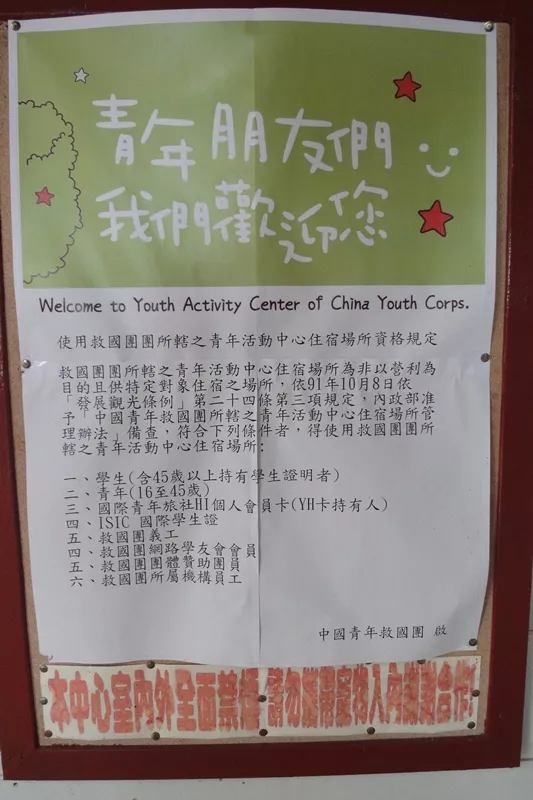 青年朋友們
我們歡迎您
Welcome to Youth Activity Center of China Youth Corps.
使用救國團團所轄之青年活動中心住宿場所資格規定
救國團團所轄之青年活動中心住宿場所為非以營利為
目的且供特定對象住宿之場所，依91年10月8日依
「發展觀光條例」第二十四條第三項規定，內政部准
予「中國青年救國團所轄之青年活動中心住宿場所管
理辦法」備查，符合下列條件者，得使用救國團團所
轄之青年活動中心住宿場所:
一、學生(含45歲以上持有學生證明者)
二、青年(16至45歲)
三、國際青年旅社HI個人會員卡(YH卡持有人)
四、ISIC 國際學生證
五、救國團義工
四、救國團網路學友會會員
五、救國團團體贊助團員
六、救國團所屬機構員工
中國青年救國團 啟
本中心室內外全面禁菸 請勿攜帶寵物入內謝謝合作